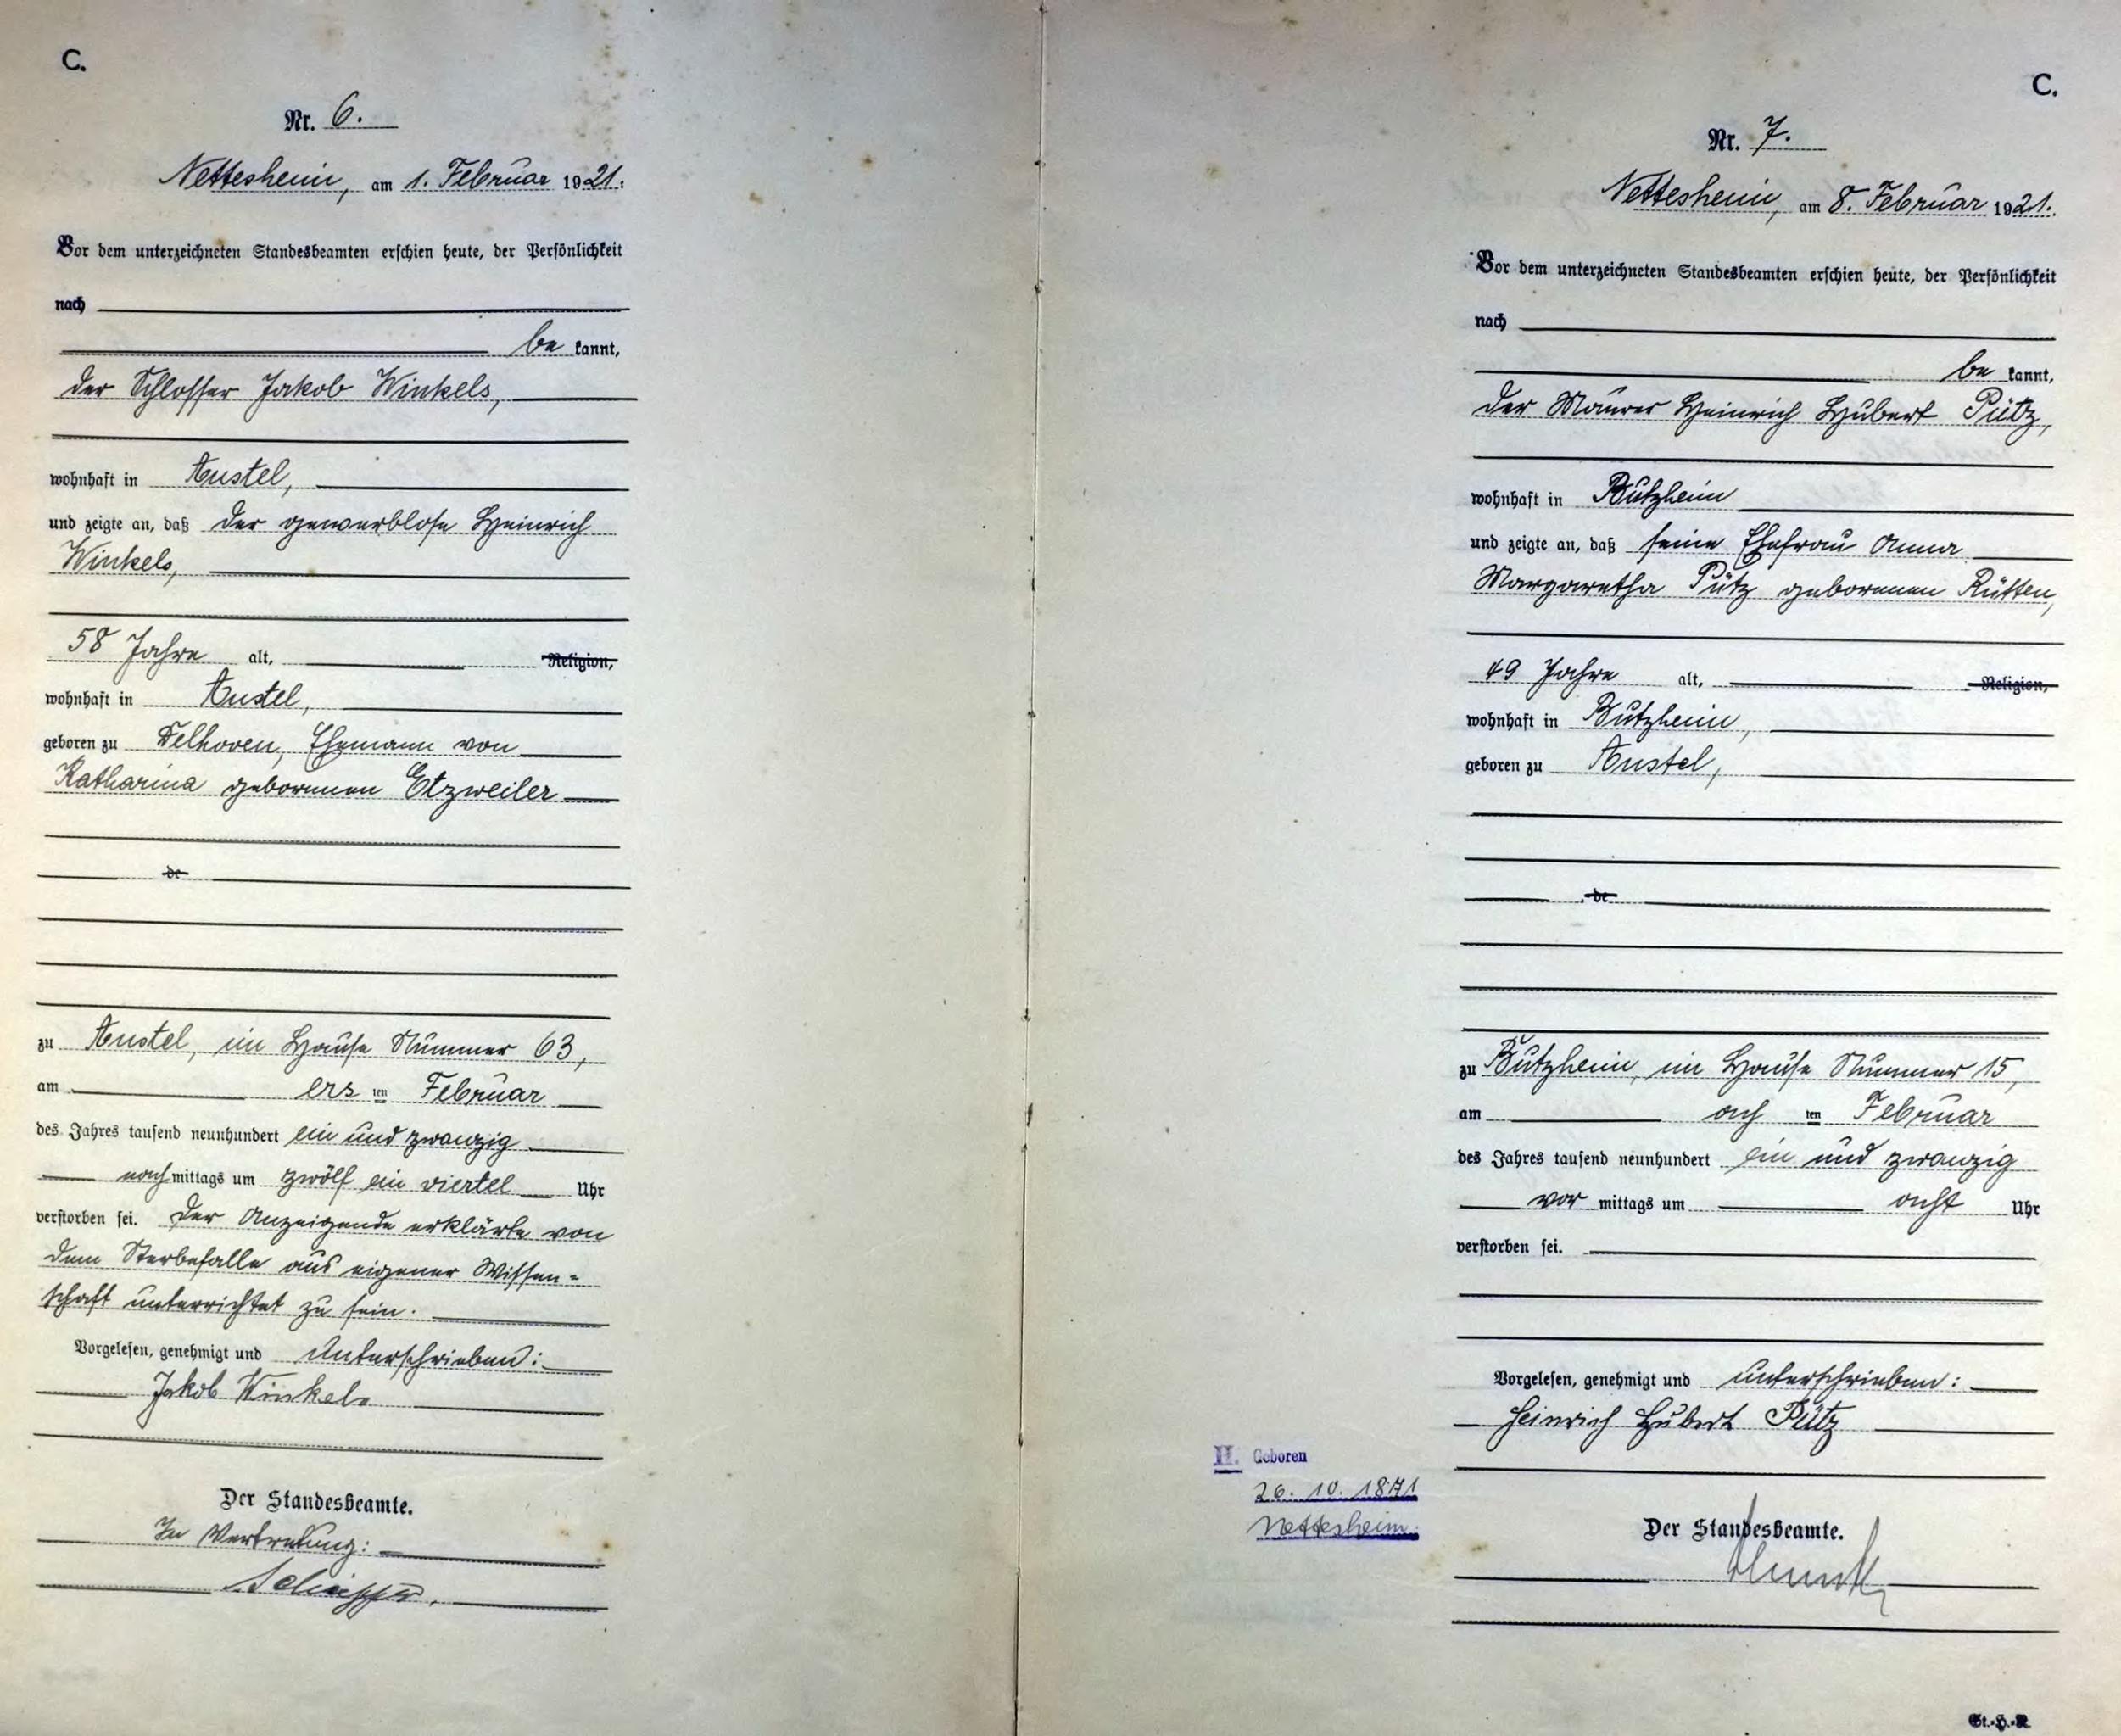 C.
Nr. 6.
Nettesheim, am 1. Februar 1921.
Vor dem unterzeichneten Standesbeamten erschien heute, der Persönlichkeit
nach
be kannt,
der Schlosser Jakob Winkels,
wohnhaft in Anstel,
und zeigte an, daß der gewerblose Heinrich
Winkels,
58 Jahre alt, Religion,
wohnhaft in Anstel,
geboren zu Delhoven, Ehemann von
Katharina geborenen Etzweiler
de
zu Anstel, im Hause Nummer 63,
am ers ten Februar
des Jahres tausend neunhundert ein und zwanzig
nach mittags um zwölf ein viertel Uhr
verstorben sei. Der Anzeigende erklärte von
dem Sterbefalle aus eigener Wissen-
schaft unterrichtet zu sein.
Vorgelesen, genehmigt und unterschrieben:
Jakob Winkels
Der Standesbeamte.
In Vertretung:
C.
Nr. 7.
Nettesheim, am 8. Februar 1921.
Vor dem unterzeichneten Standesbeamten erschien heute, der Persönlichkeit
nach
be kannt,
der Maurer Heinrich Hubert Pütz,
wohnhaft in Butzheim
und zeigte an, daß seine Ehefrau Anna
Margaretha Pütz geborenen Rütten,
49 Jahre alt, Religion,
wohnhaft in Butzheim,
geboren zu Anstel,
de
zu Butzheim, im Hause Nummer 15,
am ach ten Februar
des Jahres tausend neunhundert ein und zwanzig
vor mittags um acht Uhr
verstorben sei.
Vorgelesen, genehmigt und unterschrieben:
Heinrich Hubert Pütz
H. Geboren
26. 10. 1871
Nettesheim.
Der Standesbeamte.
St.-H.-R.